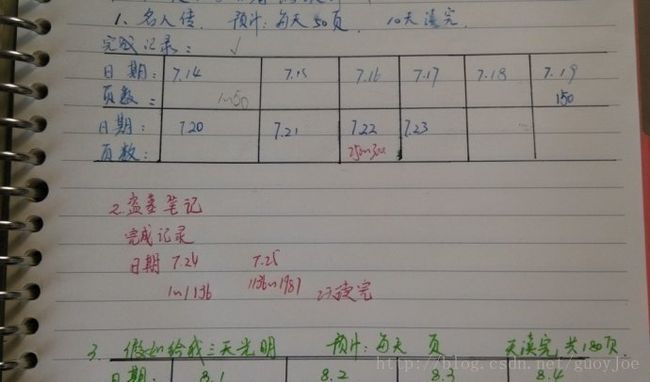 1、名人传. 预计:每天50页, 10天读完.
完成记录: √
日期: 7.14 7.15 7.16 7.17 7.18 7.19
页数: 1~50 150
日期: 7.20 7.21 7.22 7.23
页数: 250~300
2.盗墓笔记
完成记录
日期 7.24 7.25
1~1136 1136~1987 已读完
3. 假如给我三天光明 预计:每天 页 天读完,共180页.
日期: 8.1 8.2 8.3 8.4
http://blog.csdn.net/guoyJoe